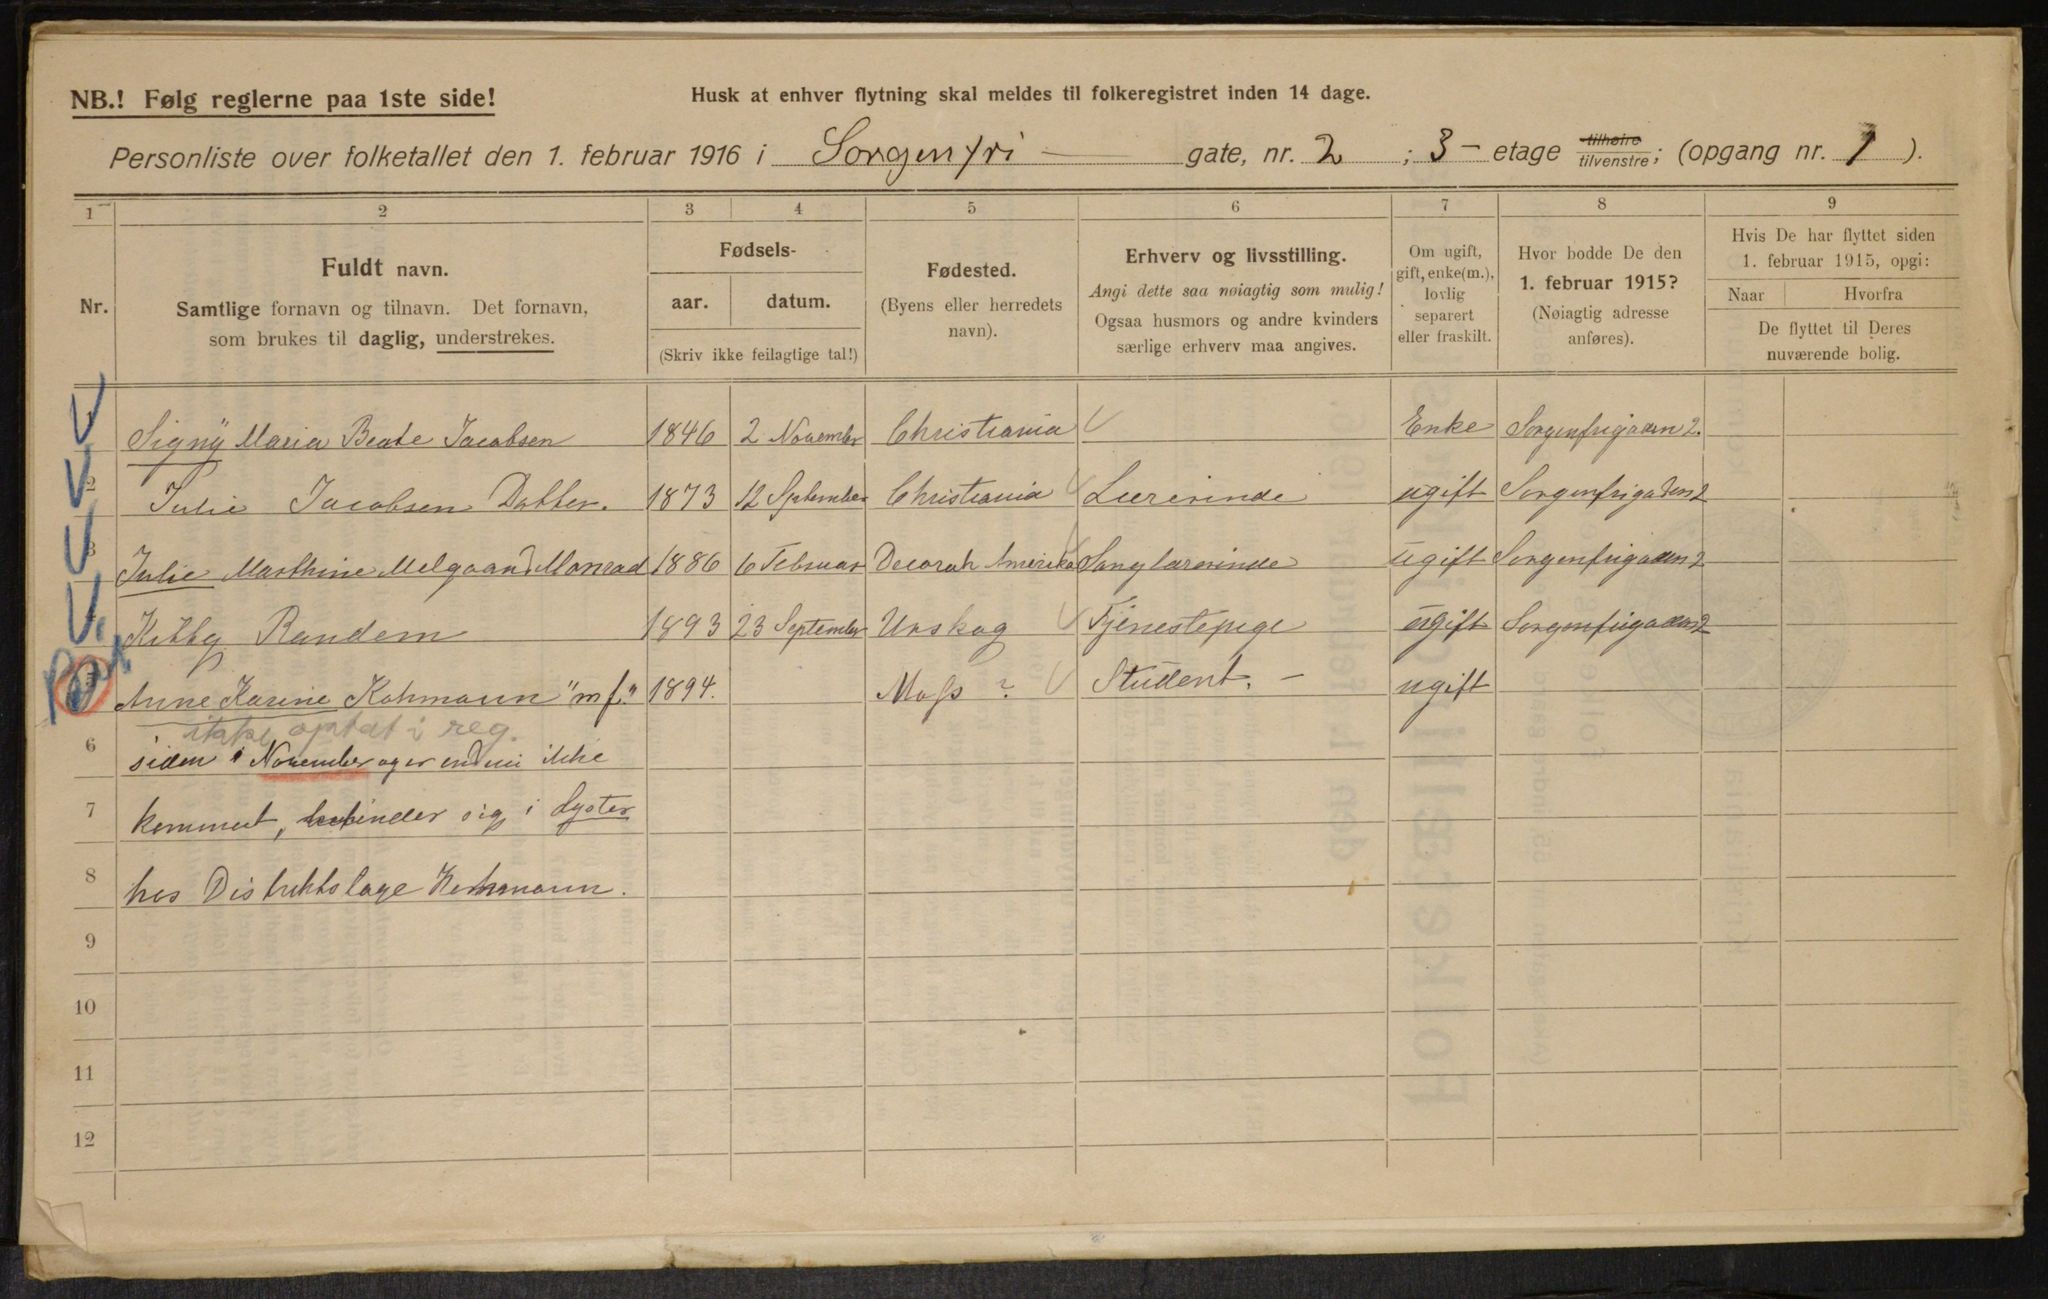 NB.! Følg reglerne paa 1ste side!
Husk at enhver flytning skal meldes til folkeregistret inden 14 dage.
Personliste over folketallet den 1. februar 1916 i Sorgenfri gate, nr. 2 ; 3 - etage tilhøire tilvenstre; (opgang nr. 1 ).
1 2 3 4 5 6 7 8 9
Nr.
Fuldt navn.
Samtlige fornavn og tilnavn. Det fornavn,
som brukes til daglig, understrekes.
Fødsels-
aar. datum.
(Skriv ikke feilagtige tal!)
Fødested.
(Byens eller herredets
navn).
Erhverv og livsstilling.
Angi dette saa nøiagtig som mulig!
Ogsaa husmors og andre kvinders
særlige erhverv maa angives.
Om ugift,
gift, enke(m.),
lovlig
separert
eller fraskilt.
Hvor bodde De den
1. februar 1915?
(Nøiagtig adresse
anføres).
Hvis De har flyttet siden
1. februar 1915, opgi:
Naar Hvorfra
De flyttet til Deres
nuværende bolig.
1 Signÿ Maria Beate Jacobsen 1846 2 November Christiania Enke Sorgenfrigaden 2.
2 Julie Jacobsen Datter. 1873 12 September Christiania Lærerinde ugift Sorgenfrigaden 2
3 Julie Marthine Melgaard Monrad 1886 6 Februar Decorah Amerika Sanglærerinde ugift Sorgenfrigaden 2
4 Kitty Randem 1893 23 September Urskog Tjenestepige ugift Sorgenfrigaden 2
5 Anne Karine Kohmann "m f." 1894. Moss ? Student. - ugift
ikke optat i reg.
6 siden November og er endnu ikke
7 kommet, befinder sig i Lyster
8 hos Distriktslæge Kohmann.
9
10
11
12